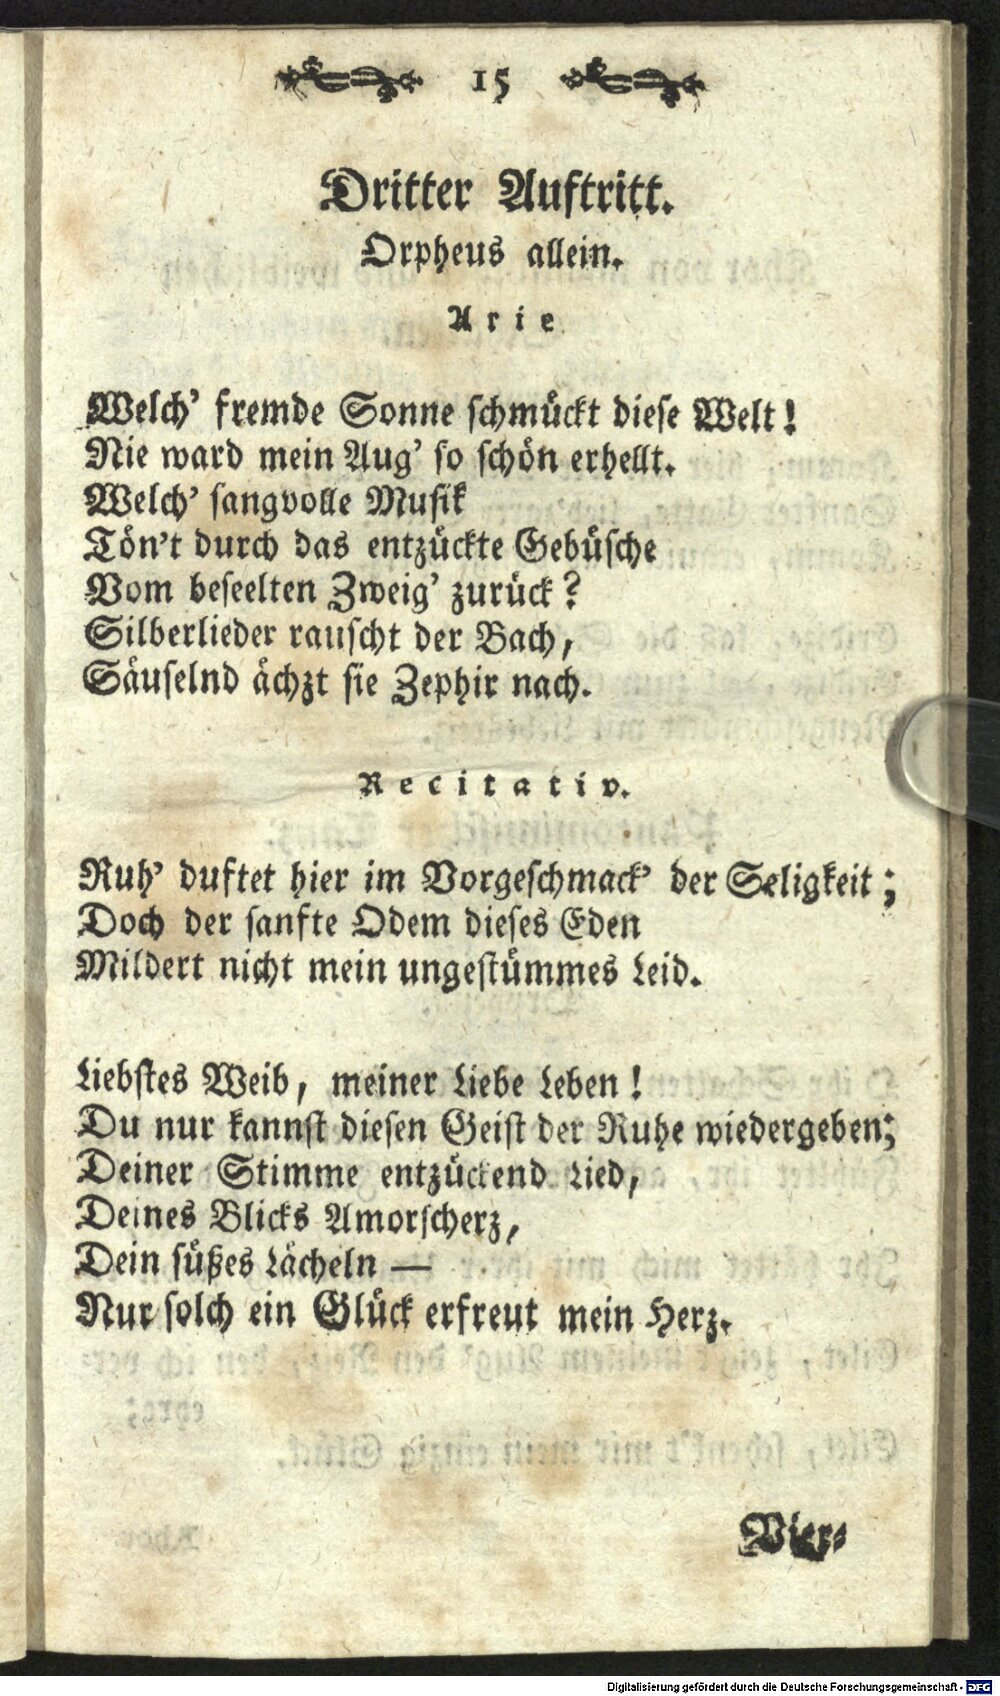 15
Dritter Auftritt.
Orpheus allein.
Arie
Welch' fremde Sonne schmückt diese Welt!
Nie ward mein Aug' so schön erhellt.
Welch' sangvolle Musik
Tön't durch das entzückte Gebüsche
Vom beseelten Zweig' zurück?
Silberlieder rauscht der Bach,
Säuselnd ächzt sie Zephir nach.
Recitativ.
Ruh' duftet hier im Vorgeschmack' der Seligkeit;
Doch der sanfte Odem dieses Eden
Mildert nicht mein ungestümmes Leid.
Liebstes Weib, meiner Liebe Leben!
Du nur kannst diesen Geist der Ruhe wiedergeben;
Deiner Stimme entzückend Lied,
Deines Blicks Amorscherz,
Dein süßes Lächeln —
Nur solch ein Glück erfreut mein Herz.
Vier-
Digitalisierung gefördert durch die Deutsche Forschungsgemeinschaft - DFG